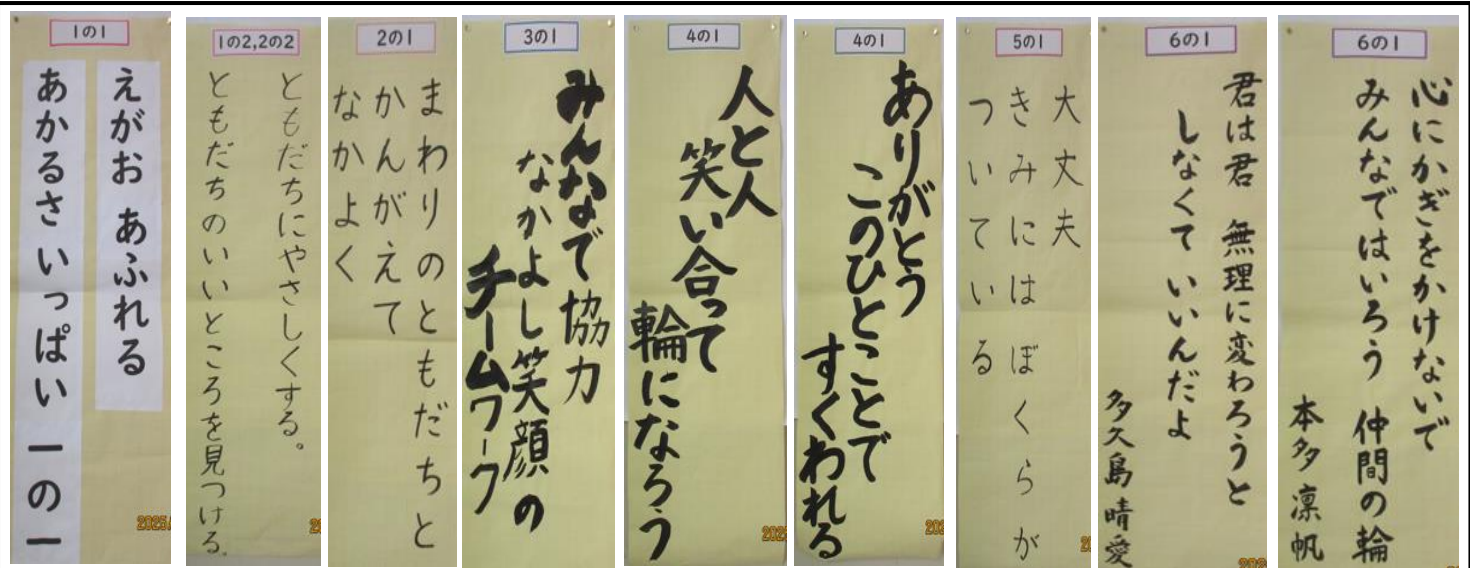 1の1
えがお あふれる
あかるさ いっぱい 一の一
1の2,2の2
ともだちにやさしくする。
ともだちのいいところを見つける。
2の1
まわりのともだちと
かんがえて
なかよく
3の1
みんなで協力
なかよし笑顔の
チームワーク
4の1
人と人
笑い合って
輪になろう
4の1
ありがとう
このひとことで
すくわれる
5の1
大丈夫
きみにはぼくらが
ついている
6の1
君は君 無理に変わろうと
しなくて いいんだよ
多久島晴愛
6の1
心にかぎをかけないで
みんなではいろう 仲間の輪
本多凛帆
2025